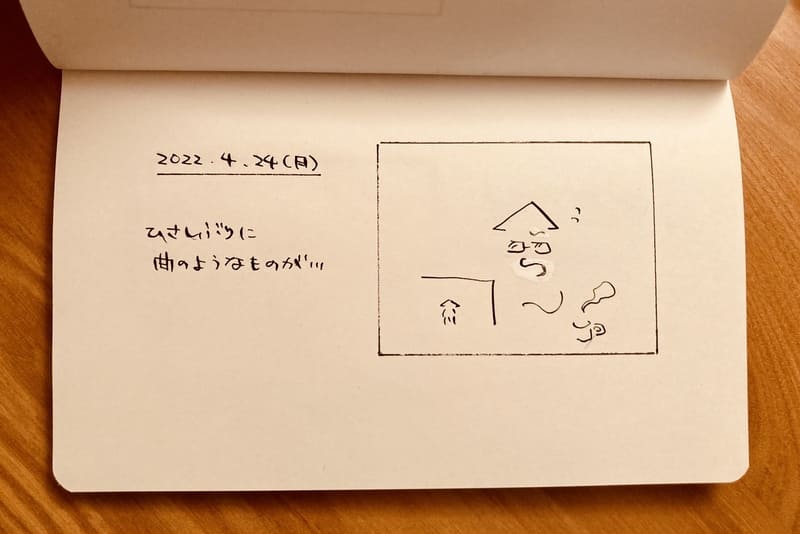 2022.4.24(日)
ひさしぶりに
曲のようなものが…